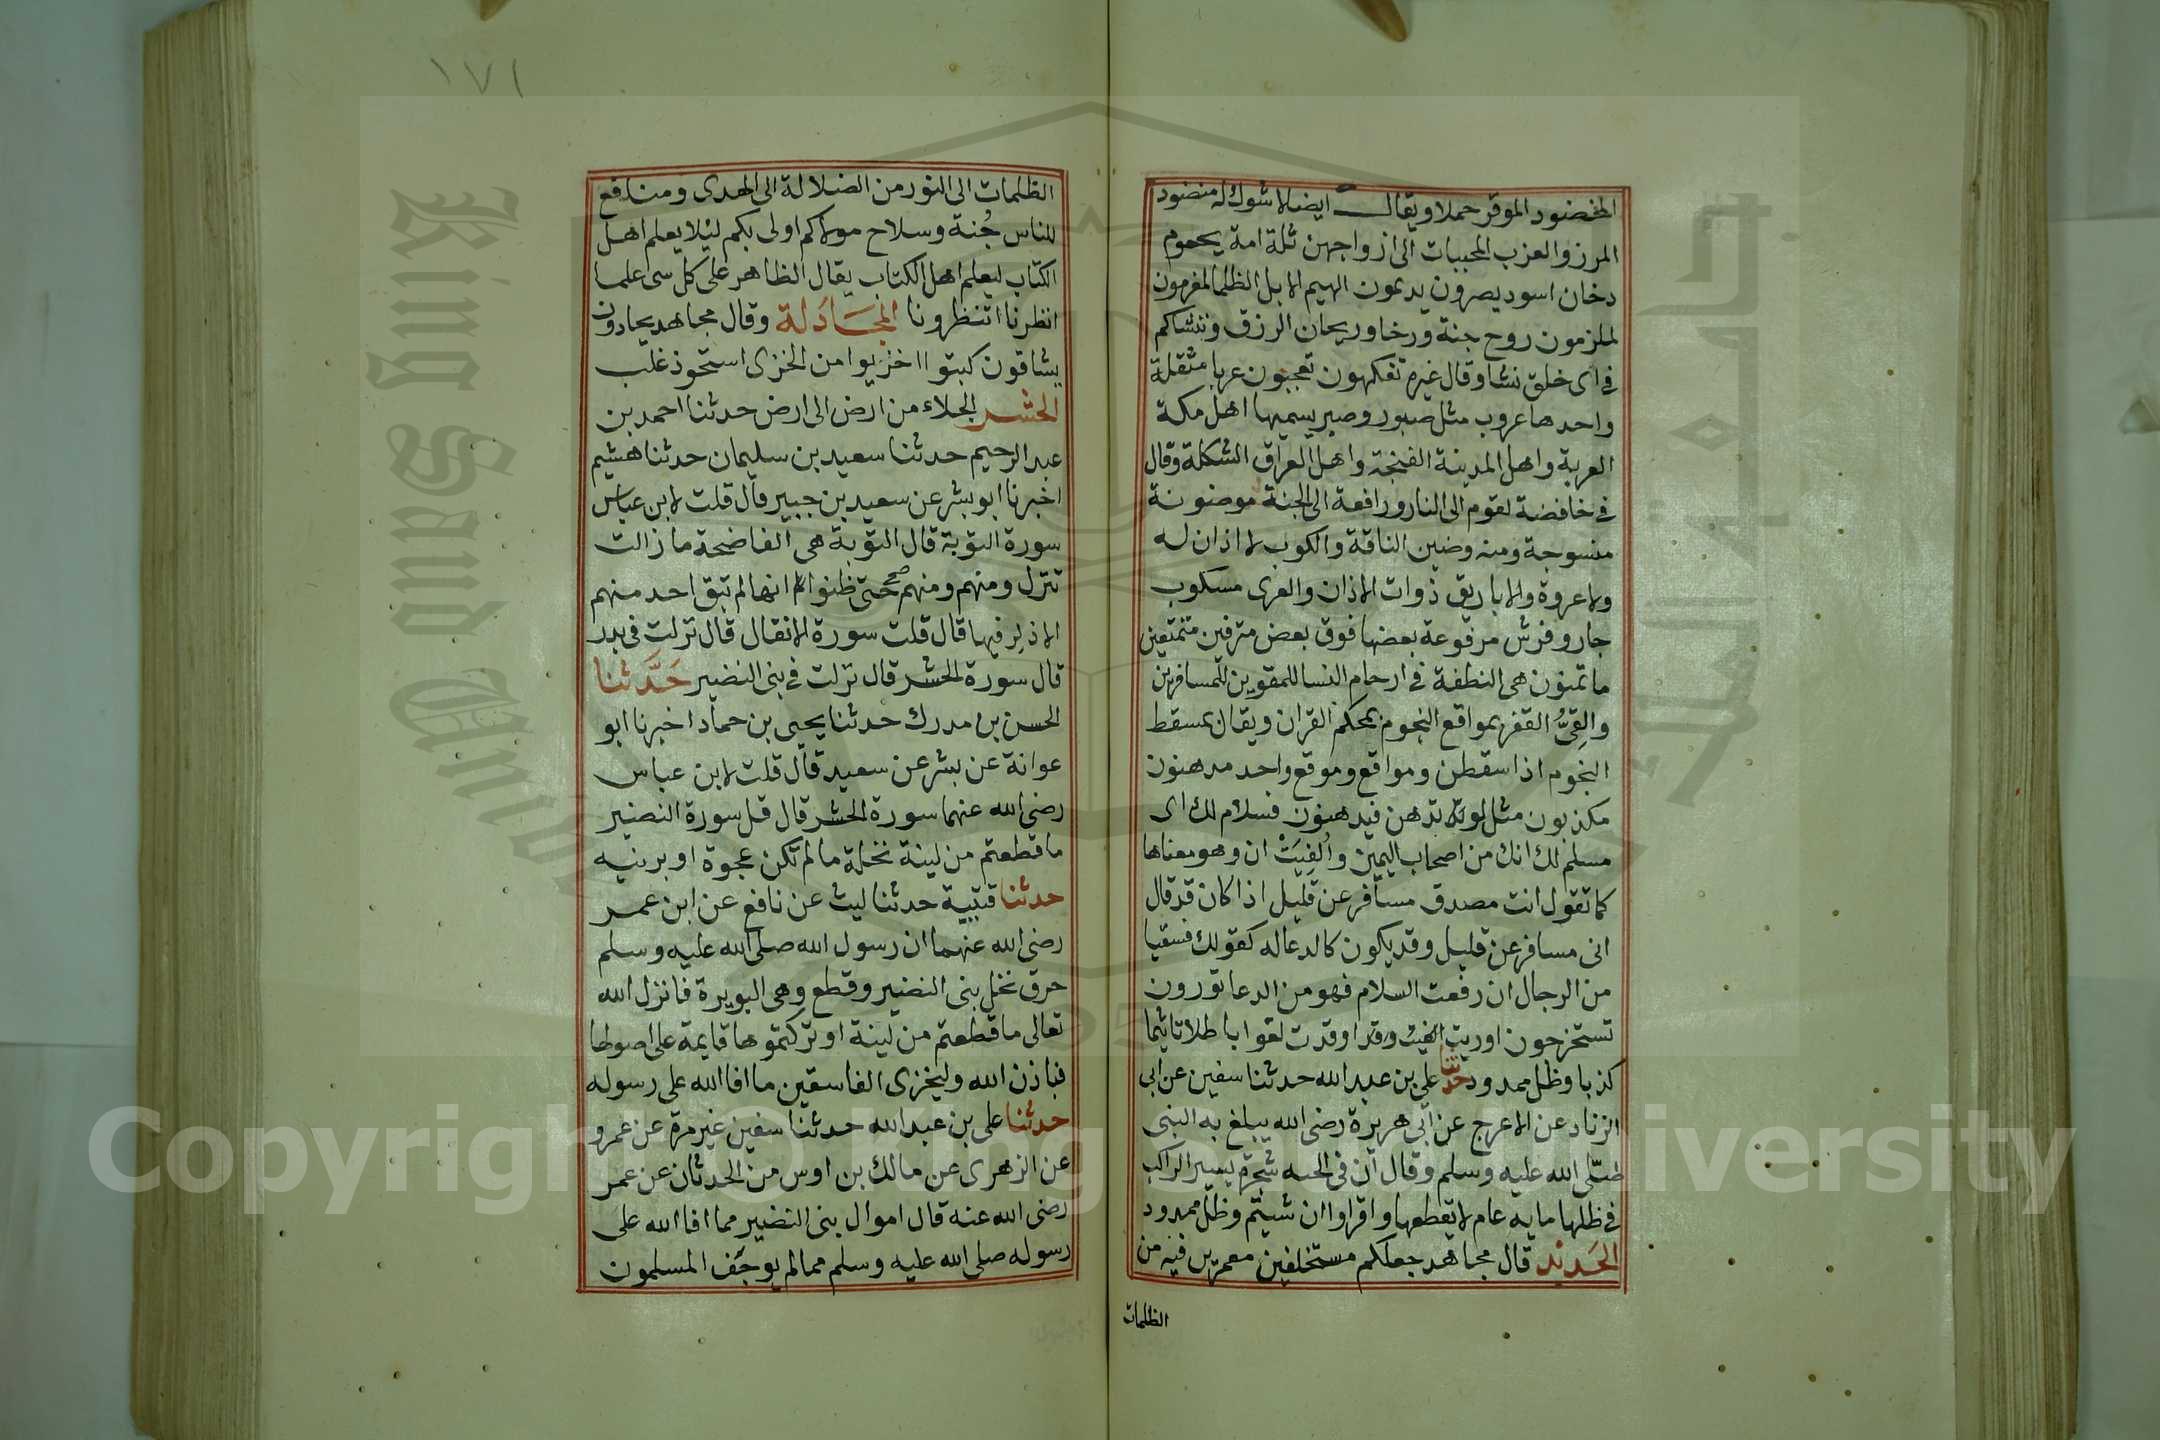 المخضود الموقر حملا ويقال ايضا لا شوك له منضود
المرز والعزب المحببات الى ازواجهن ثلة امة يحموم
دخان اسود يصرون يدعون الهيم الابل الظلما لمغرمون
لملزمون روح جنة ورخا وريحان الرزق وننشاكم
في اى خلق نشا وقال غيره تفكهون تعجبون عربا مثقلة
واحدها عروب مثل صبور وصبر يسميها اهل مكة
العربة واهل المدينة الغنجة واهل العراق الشكلة وقال
في خافضة لقوم الى النار ورافعة الى الجنة موضونة
منسوجة ومنه وضين الناقة والكوب لا اذان له
ولا عروة والاباريق ذوات الاذان والعرى مسكوب
جار وفرش مرفوعة بعضها فوق بعض مترفين متمتعين
ما تمنون هى النطفة في ارحام النسا للمقوين للمسافرين
والقِىُّ القفر بمواقع النجوم بمحكم القران ويقال بمسقط
النجوم اذا سقطن ومواقع وموقع واحد مدهنون
مكذبون مثل لو تدهن فيدهنون فسلام لك اى
مسلم لك انك من اصحاب اليمين واُلقِيَتْ ان وهو معناها
كما تقول انت مصدق مسافر عن قليل اذا كان قد قال
انى مسافر عن قليل وقد يكون كالدعا له كقولك فسقيا
من الرجال ان رفعت السلام فهو من الدعا تورون
تستخرجون اوريت وقدا وقدت لغوا باطلا تاثيما
كذبا وظل ممدود حدثنا على بن عبد الله حدثنا سفين عن ابى
الزناد عن الاعرج عن ابى هريرة رضى الله يبلغ به النبى
صلى الله عليه وسلم وقال ان فى الجنه شجرة يسير الراكب
في ظلها مايه عام لا يقطعها واقراوا ان شيتم وظل ممدود
الحَديْد قال مجاهد جعلكم مستخلفين معمرين فيه من
الظلمات
١٧١
الظلمات الى النور من الضلالة الى الهدى ومنافع
للناس جُنة وسلاح مولاكم اولى بكم ليلا يعلم اهل
الكتاب ليعلم اهل الكتاب يقال الظاهر على كل سى علما
انظرنا انتظرونا المجَادَلة وقال مجاهد يحادون
يشاقون كبتوا اخزيوا من الخزى استحوذ غلب
الحشر الجلاء من ارض الى ارض حدثنا احمد بن
عبد الرحيم حدثنا سعيد بن سليمان حدثنا هشيم
اخبرنا ابو بشر عن سعيد بن جبير قال قلت لابن عباس
سورة التوبة قال التوبة هى الفاضحة ما زالت
تنزل ومنهم ومنهم حتى ظنوا انها لم تبق احد منهم
الا ذكر فيها قال قلت سورة الانفال قال نزلت في بدر
قال سورة الحشر قال نزلت في بنى النضير حَدَّثنا
الحسن بن مدرك حدثنا يحيى بن حماد اخبرنا ابو
عوانة عن بشر عن سعيد قال قلت لابن عباس
رضى الله عنهما سورة الحشر قال قل سورة النضير
ما قطعتم من لينة نخلة ما لم تكن عجوة او برنيه
حدثنا قتيبة حدثنا ليث عن نافع عن ابن عمر
رضى الله عنهما ان رسول الله صلى الله عليه وسلم
حرق نخل بنى النضير وقطع وهى البويرة فانزل الله
تعالى ما قطعتم من لينة او تركتموها قايمة على اصولها
فباذن الله وليخزى الفاسقين ما افا الله على رسوله
حدثنا على بن عبد الله حدثنا سفين غير مرة عن عمرو
عن الزهرى عن مالك بن اوس من الحدثان عن عمر
رضى الله عنه قال اموال بنى النضير مما افا الله على
رسوله صلى الله عليه وسلم مما لم يوجف المسلمون
Copyright © King Saud University